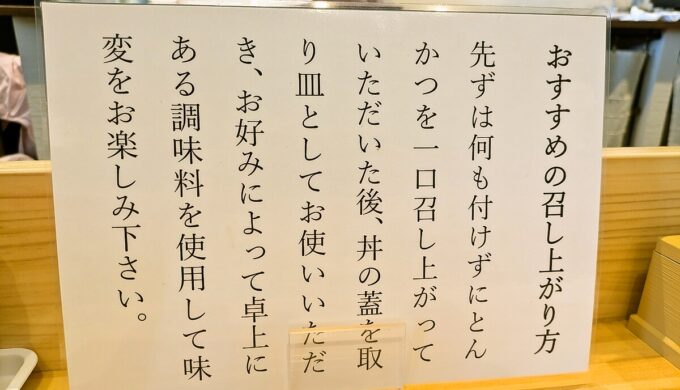 おすすめの召し上がり方
先ずは何も付けずにとん
かつを一口召し上がって
いただいた後、丼の蓋を取
り皿としてお使いいただ
き、お好みによって卓上に
ある調味料を使用して味
変をお楽しみ下さい。